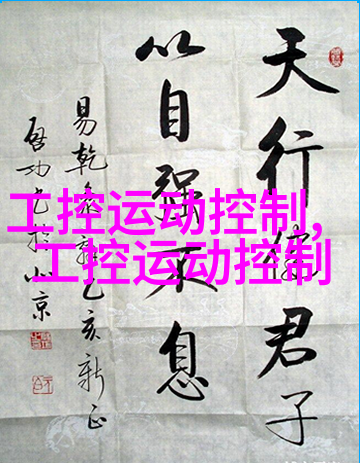 天行健君子
以自强不息
易乾象辞乙亥新正
启功书於北京
工控运动控制,
工控运动控制